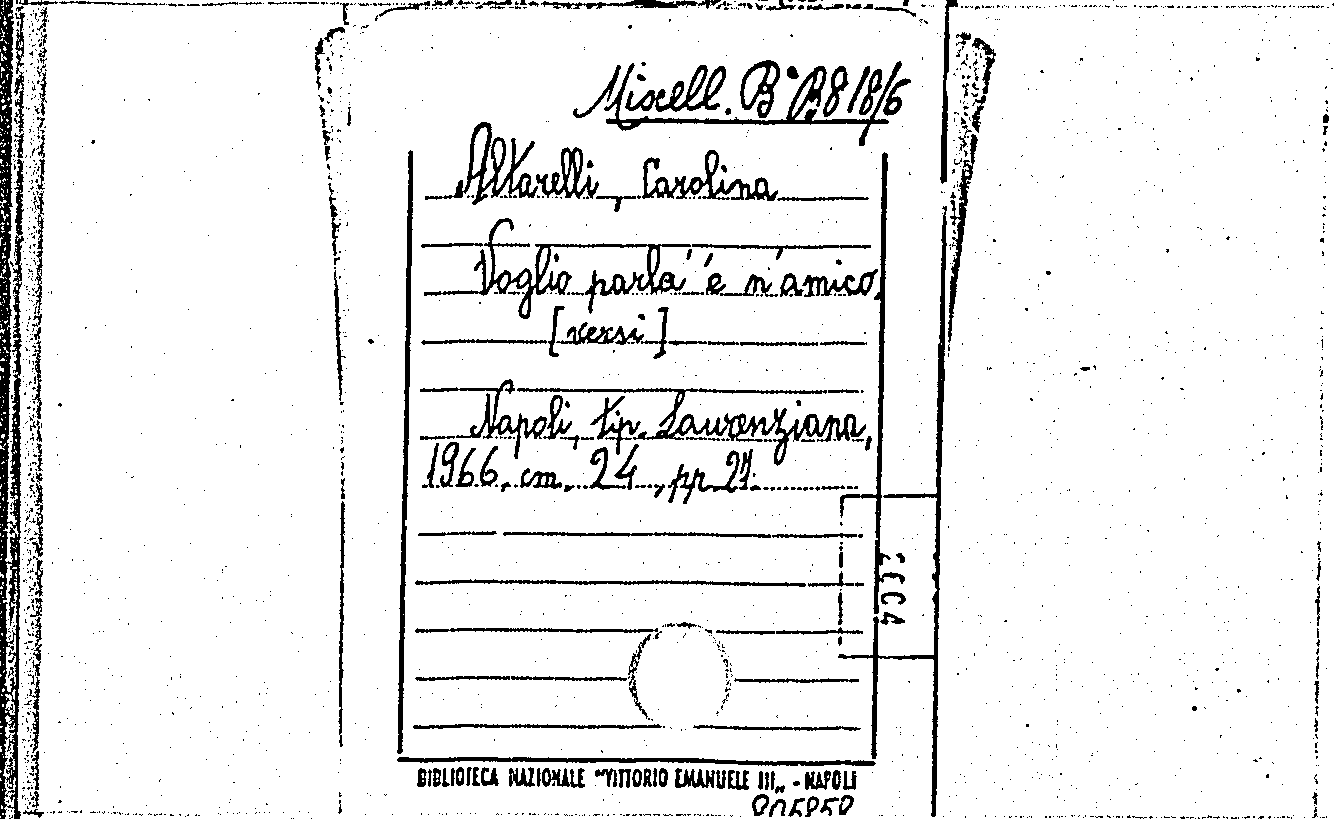 Miscell. B° B818/6
Altarelli, Carolina
Voglio parla' 'e n'amico.
[versi]
Napoli, tip. Laurenziana,
1966. cm. 24, pp 27.
BIBLIOTECA NAZIONALE "VITTORIO EMANUELE III„ - NAPOLI
805858